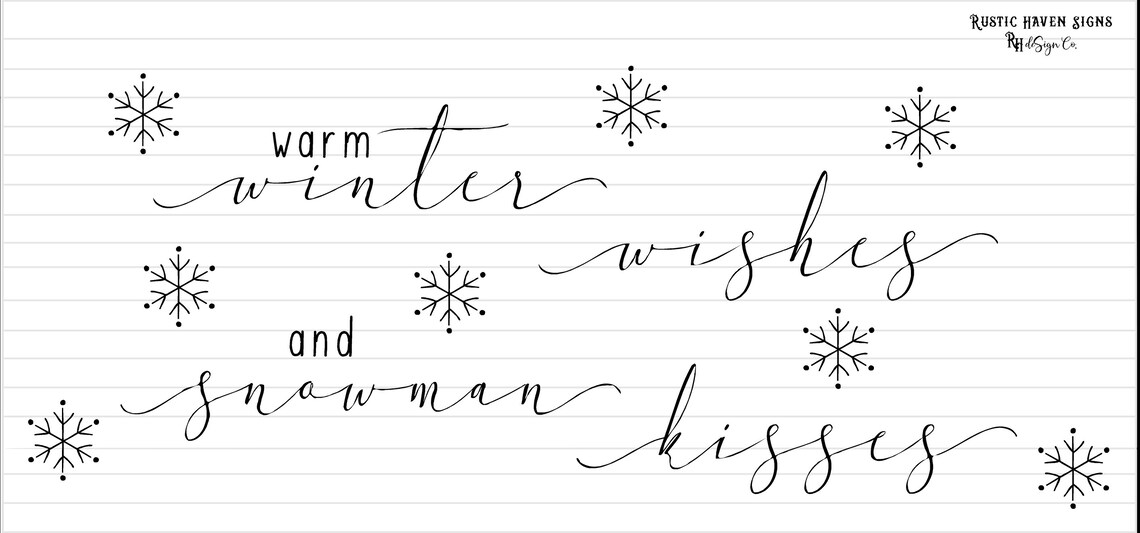 RUSTIC HAVEN SIGNS
RH deSign Co.
warm
winter
wishes
and
snowman
kisses